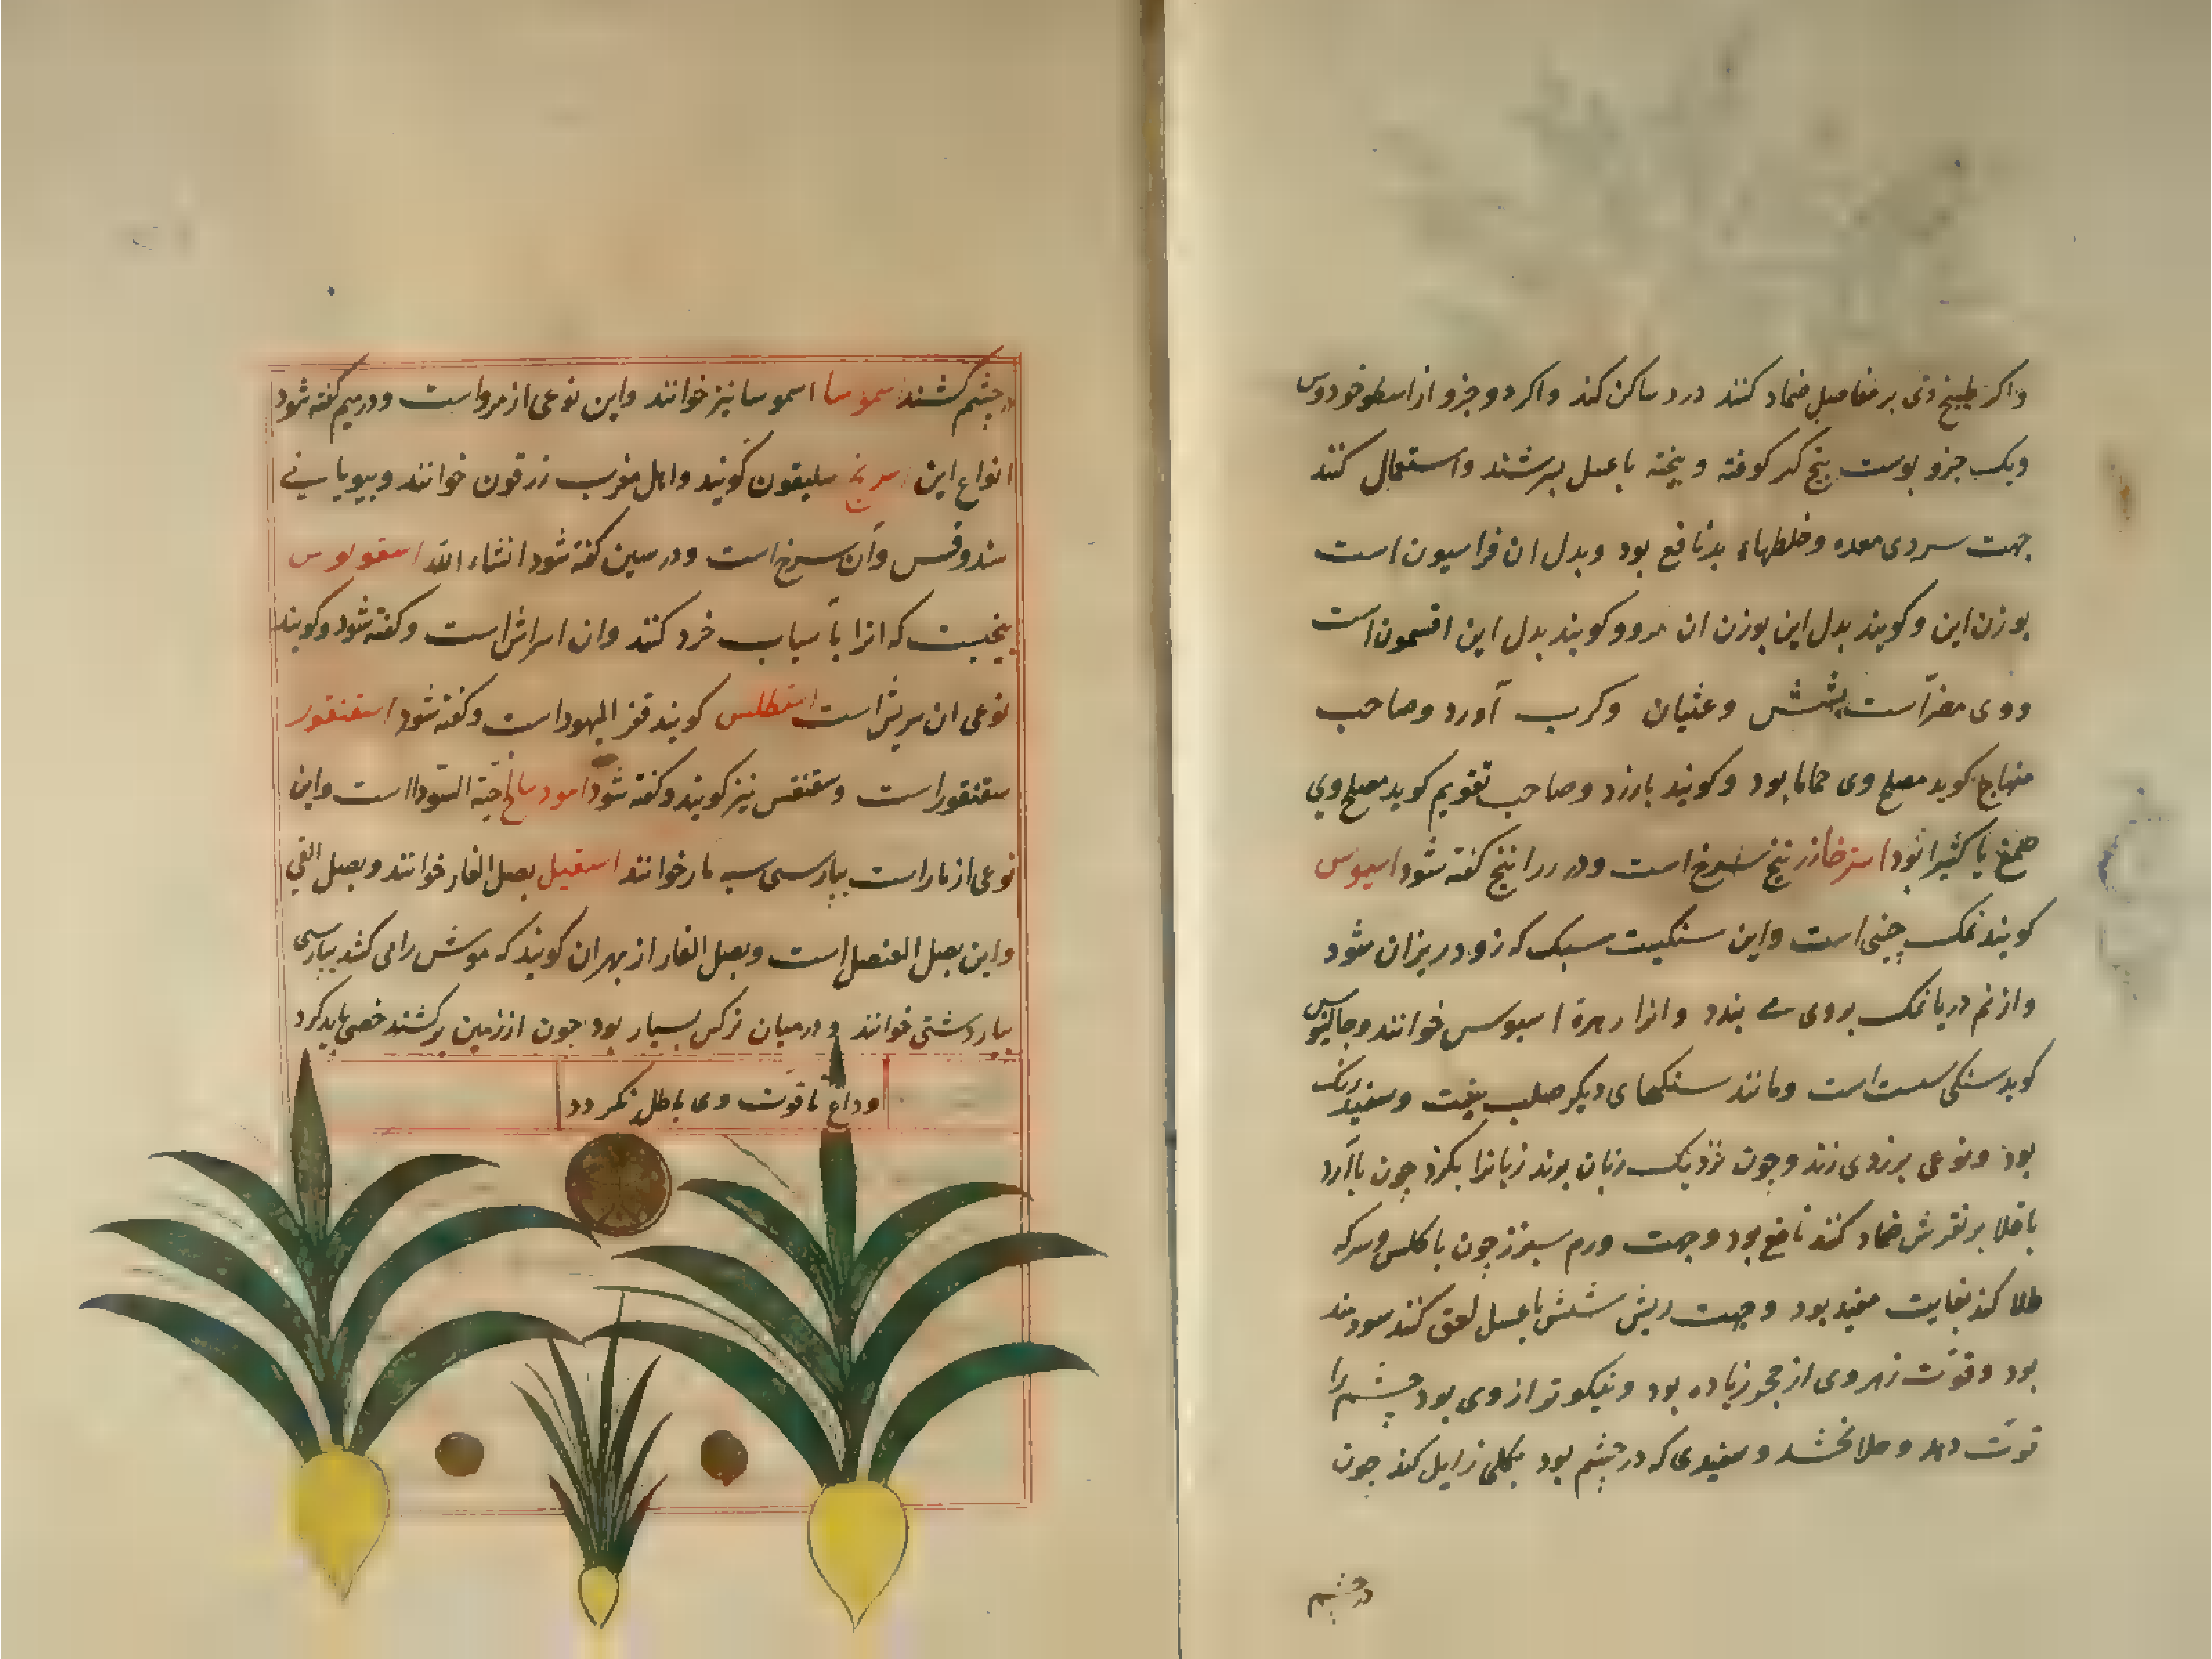 واکر طبیخ وی بر مفاصل ضماد کنند درد ساکن کند واکر دو جزو از اسطوخودوس
ویک جزو پوست بیخ کبر کوفته و بیخته باعسل بسرشند واستعمال کنند
جهت سردی معده وخلطهاء بد نافع بود وبدل ان فراسیون است
بوزن این وکویند بدل این بوزن ان مرو وکویند بدل این افتیمون است
ووی مضرّ است بشش وغثیان وکرب آورد وصاحب
منهاج کوید مصلح وی حماما بود وکویند بارزد وصاحب تقویم کوید مصلح وی
صمغ یا کثیرا بود استرخا زرنیخ سرخ است ودر را نیخ کفته شود اسیوس
کویند نمک چینی است واین سنکیست سبک که زود ریزان شود
واز نم دریا نمک بروی می بندد وانرا زهرة اسیوس خوانند وجالینوس
کوید سنکی سست است ومانند سنکهای دیکر صلب نیست وسفید رنک
بود ونوعی بزردی زند وچون نزدیک زبان برند زبانرا بکزد چون باآرد
باقلا بر نقرس ضماد کنند نافع بود وجهت ورم سپرز چون باکلس وسرکه
طلا کنند بغایت مفید بود وجهت ریش شش باعسل لعق کنند سودمند
بود وقوّت زهر وی از حجر زیاده بود ونیکوتر از وی بود چشم را
قوّت دهد وجلا بخشد وسفیدی که در چشم بود بکلی زایل کند چون
در چشم
در چشم کشند سموسا اسموسا نیز خوانند واین نوعی از مرو است ودر میم کفته شود
انواع این اسرنج سلیقون کویند واهل مغرب زرقون خوانند وبیونانی
سندوقس وآن سرخ است ودر سین کفته شود انشاء الله اسقولوس
بیخیست که انرا بآسیاب خرد کنند وان اسراش است وکفته شود وکویند
نوعی ان سریش است اسفلطس کویند قفر الیهود است وکفته شود اسقنقور
سقنقور است وسقنقس نیز کویند وکفته شود اسود سالخ حیّة السّودا است واین
نوعی از مار است بپارسی سیه مار خوانند اسقیل بصل الفار خوانند وبصل القی
واین بصل العنصل است وبصل الفار از بهر ان کویند که موش را می کشد بپارسی
پیاز دشتی خوانند ودرمیان نرکس بسیار بود چون از زمین برکشند خصی باید کرد
وداغ تا قوّت وی باطل نکردد